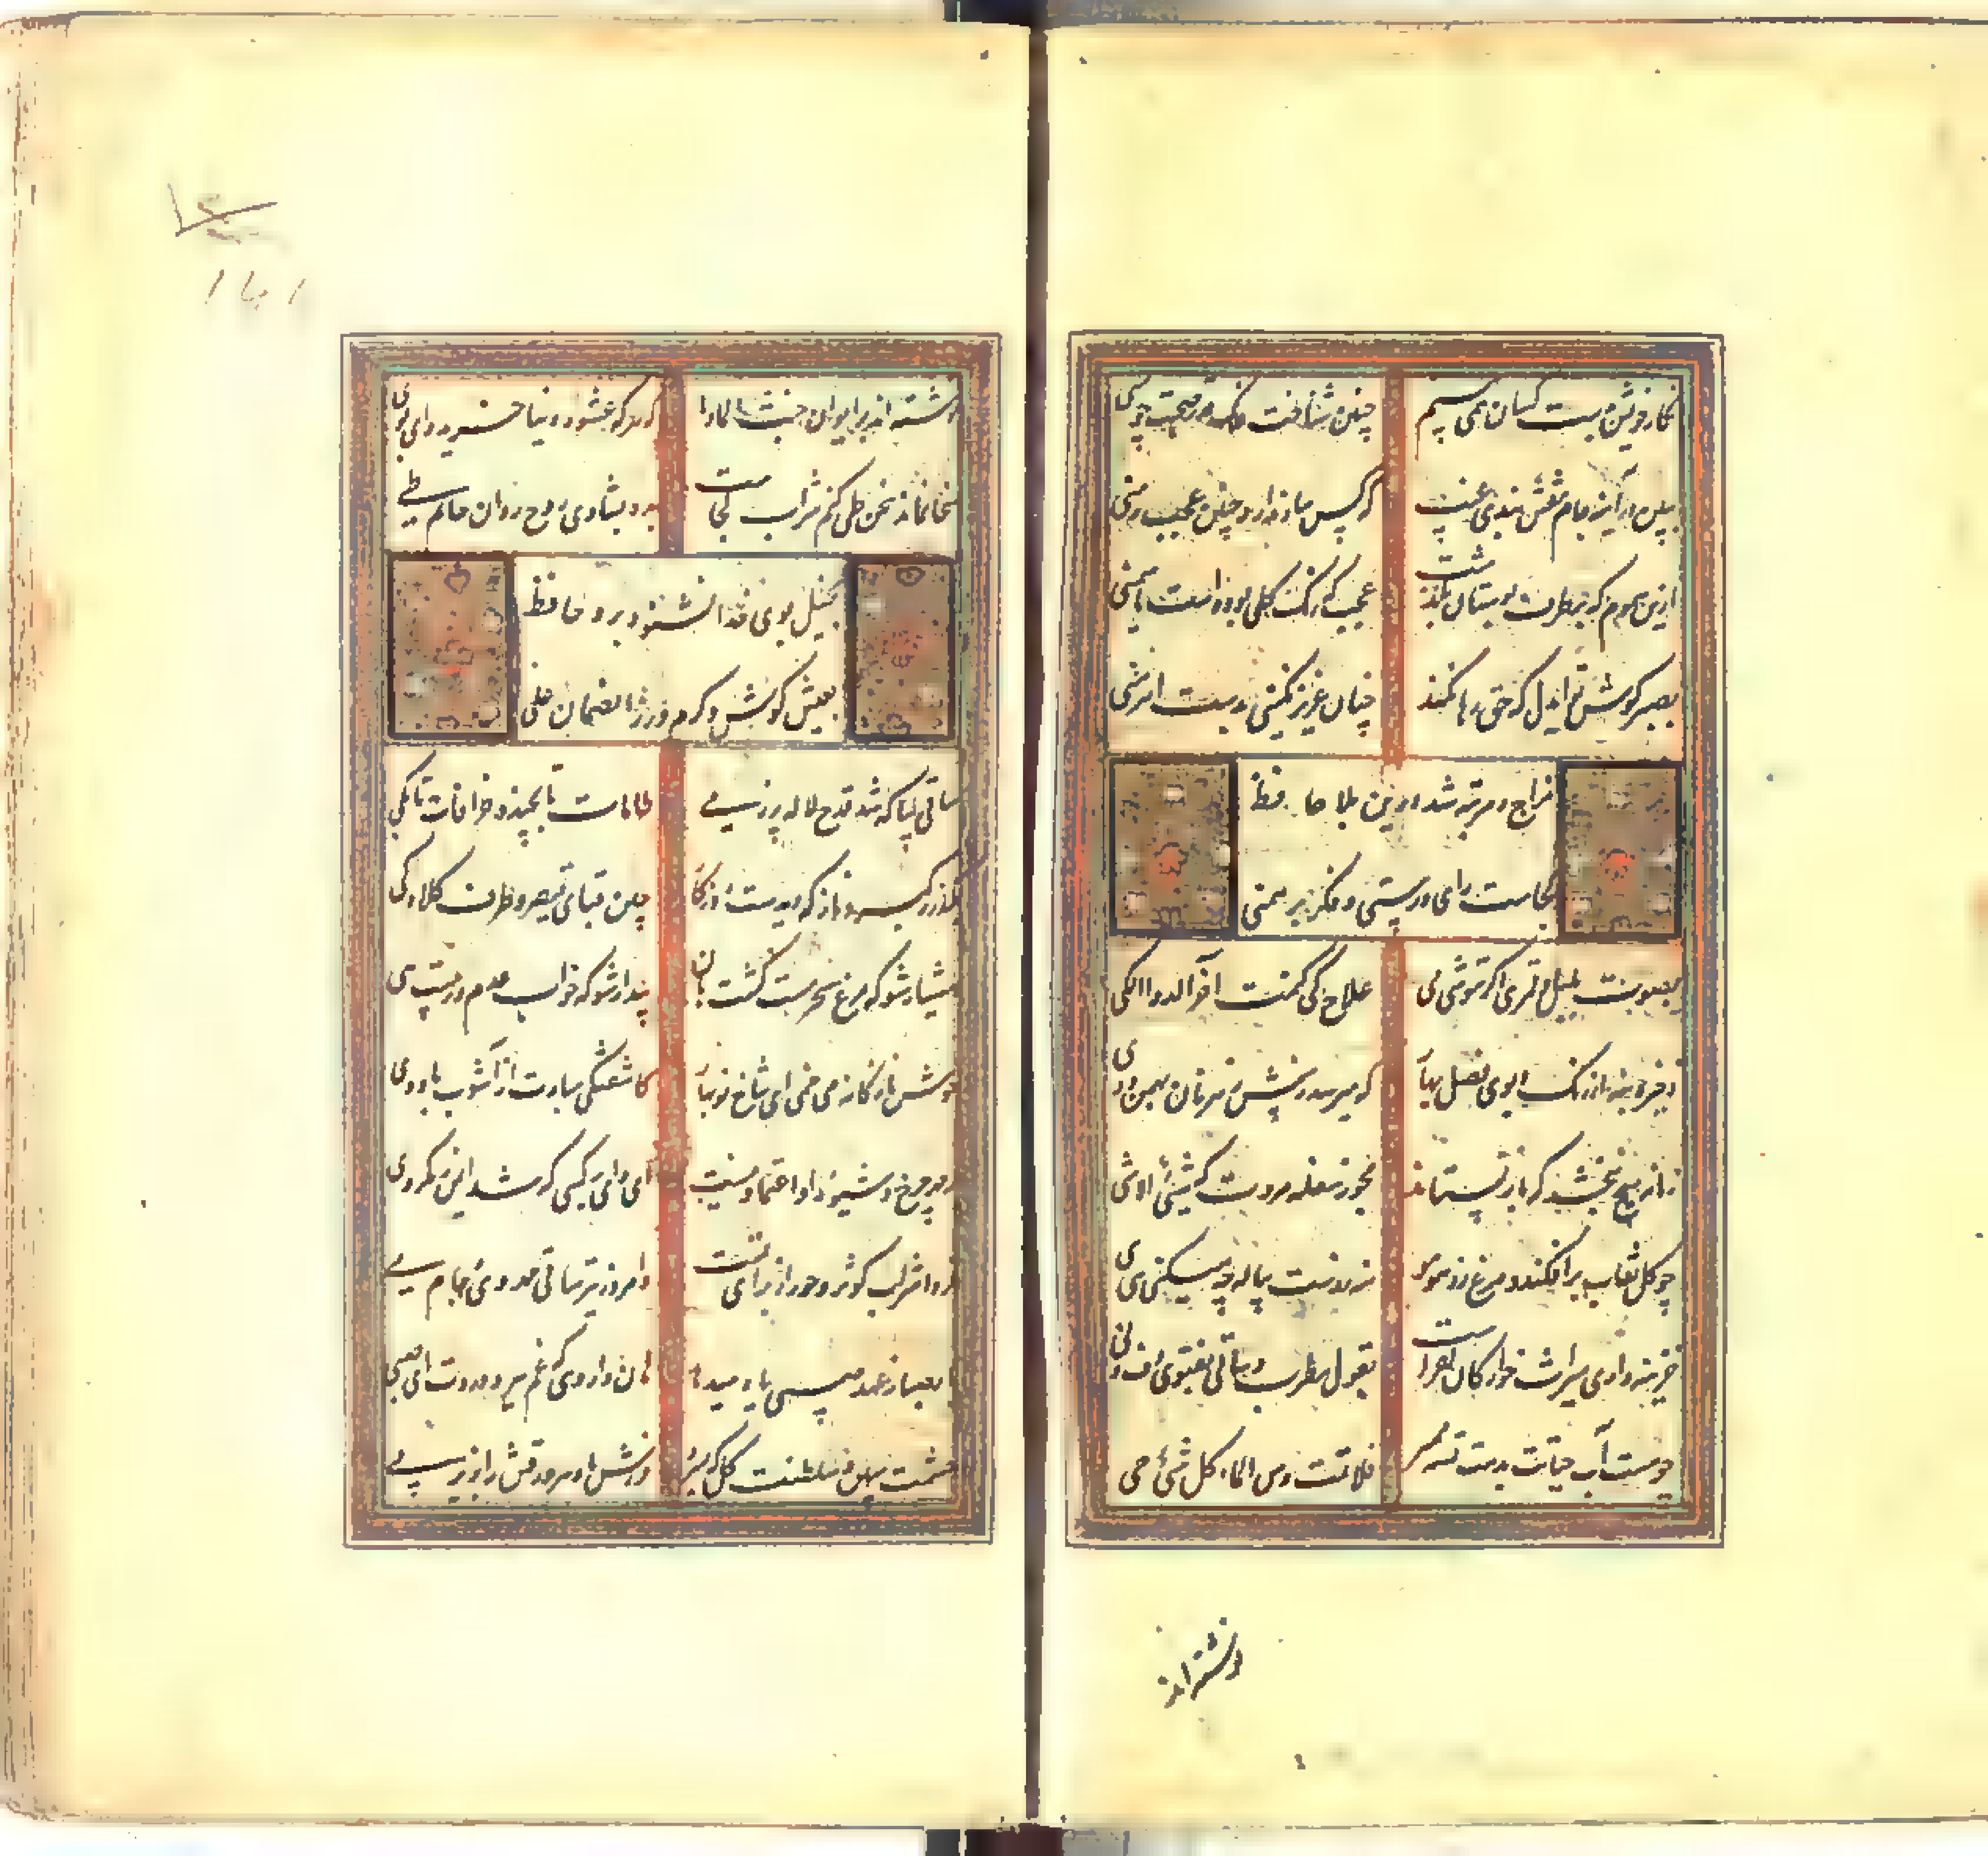 نکار خویش بدست کسان همی بینم
چنین شناخت فلک حق صحبت چو منی
ببین در آینه جام نقش بندی غیب
که کس بیاد ندارد چنین عجب زمنی
ازین سموم که بر طرف بوستان بگذشت
عجب که رنگ گلی بود و است یاسمنی
بصبر کوش تو ایدل که حق رها نکند
چنان عزیز نگینی بدست اهرمنی
مزاج دهر تبه شد درین بلا حافظ
کجاست رای درستی و فکر برهمنی
بصوت بلبل و قمری اگر ننوشی می
علاج کی کنمت آخر الدواء الکی
ذخیره بنه از رنگ و بوی فصل بهار
که میرسد ز پیش رهزنان بهمن و دی
زمانه هیچ نبخشد که باز نستاند
مجو ز سفله مروت که شیئه لا شی
چو گل نقاب برافکند و مرغ زد هوهو
منه ز دست پیاله چه میکنی هی هی
خزینه داری میراث خوارگان کفر است
بقول مطرب و ساقی بفتوی دف و نی
چو هست آب حیاتت بدست تشنه ممیر
فلا تمت و من الماء کل شیء حی
نوشته اند
نوشته اند بر ایوان جنت الماوا
که هر که عشوه دنیا خرید وای بوی
سخا نماند سخن طی کنم شراب کجاست
بده بشادی روح روان حاتم طی
بخیل بوی خدا نشنود برو حافظ
بعیش کوش و کرم ورز الضمان علی
ساقی بیا که شد قدح لاله پر ز می
طامات تا بچند و خرافات تا بکی
بگذر ز کبر و ناز که دیدست روزگار
چین قبای قیصر و طرف کلاه کی
هشیار شو که مرغ سحر مست گشت هان
بیدار شو که خواب عدم در پیست هی
خوش نازکانه می چمی ای شاخ نوبهار
کاشفتگی مبادت از آشوب باد دی
بر مهر چرخ و شیوه او اعتماد نیست
ای وای بر کسی که شد ایمن ز مکر وی
فردا شراب کوثر و حور از برای تست
و امروز نیز ساقی مه روی و جام می
باد صبا ز عهد صبی یاد میدهد
جان داروی که غم ببرد در ده ای صبی
حشمت مبین و سلطنت گل که بسپرد
فراش باد هر ورقش را بزیر پی
۱۸۱